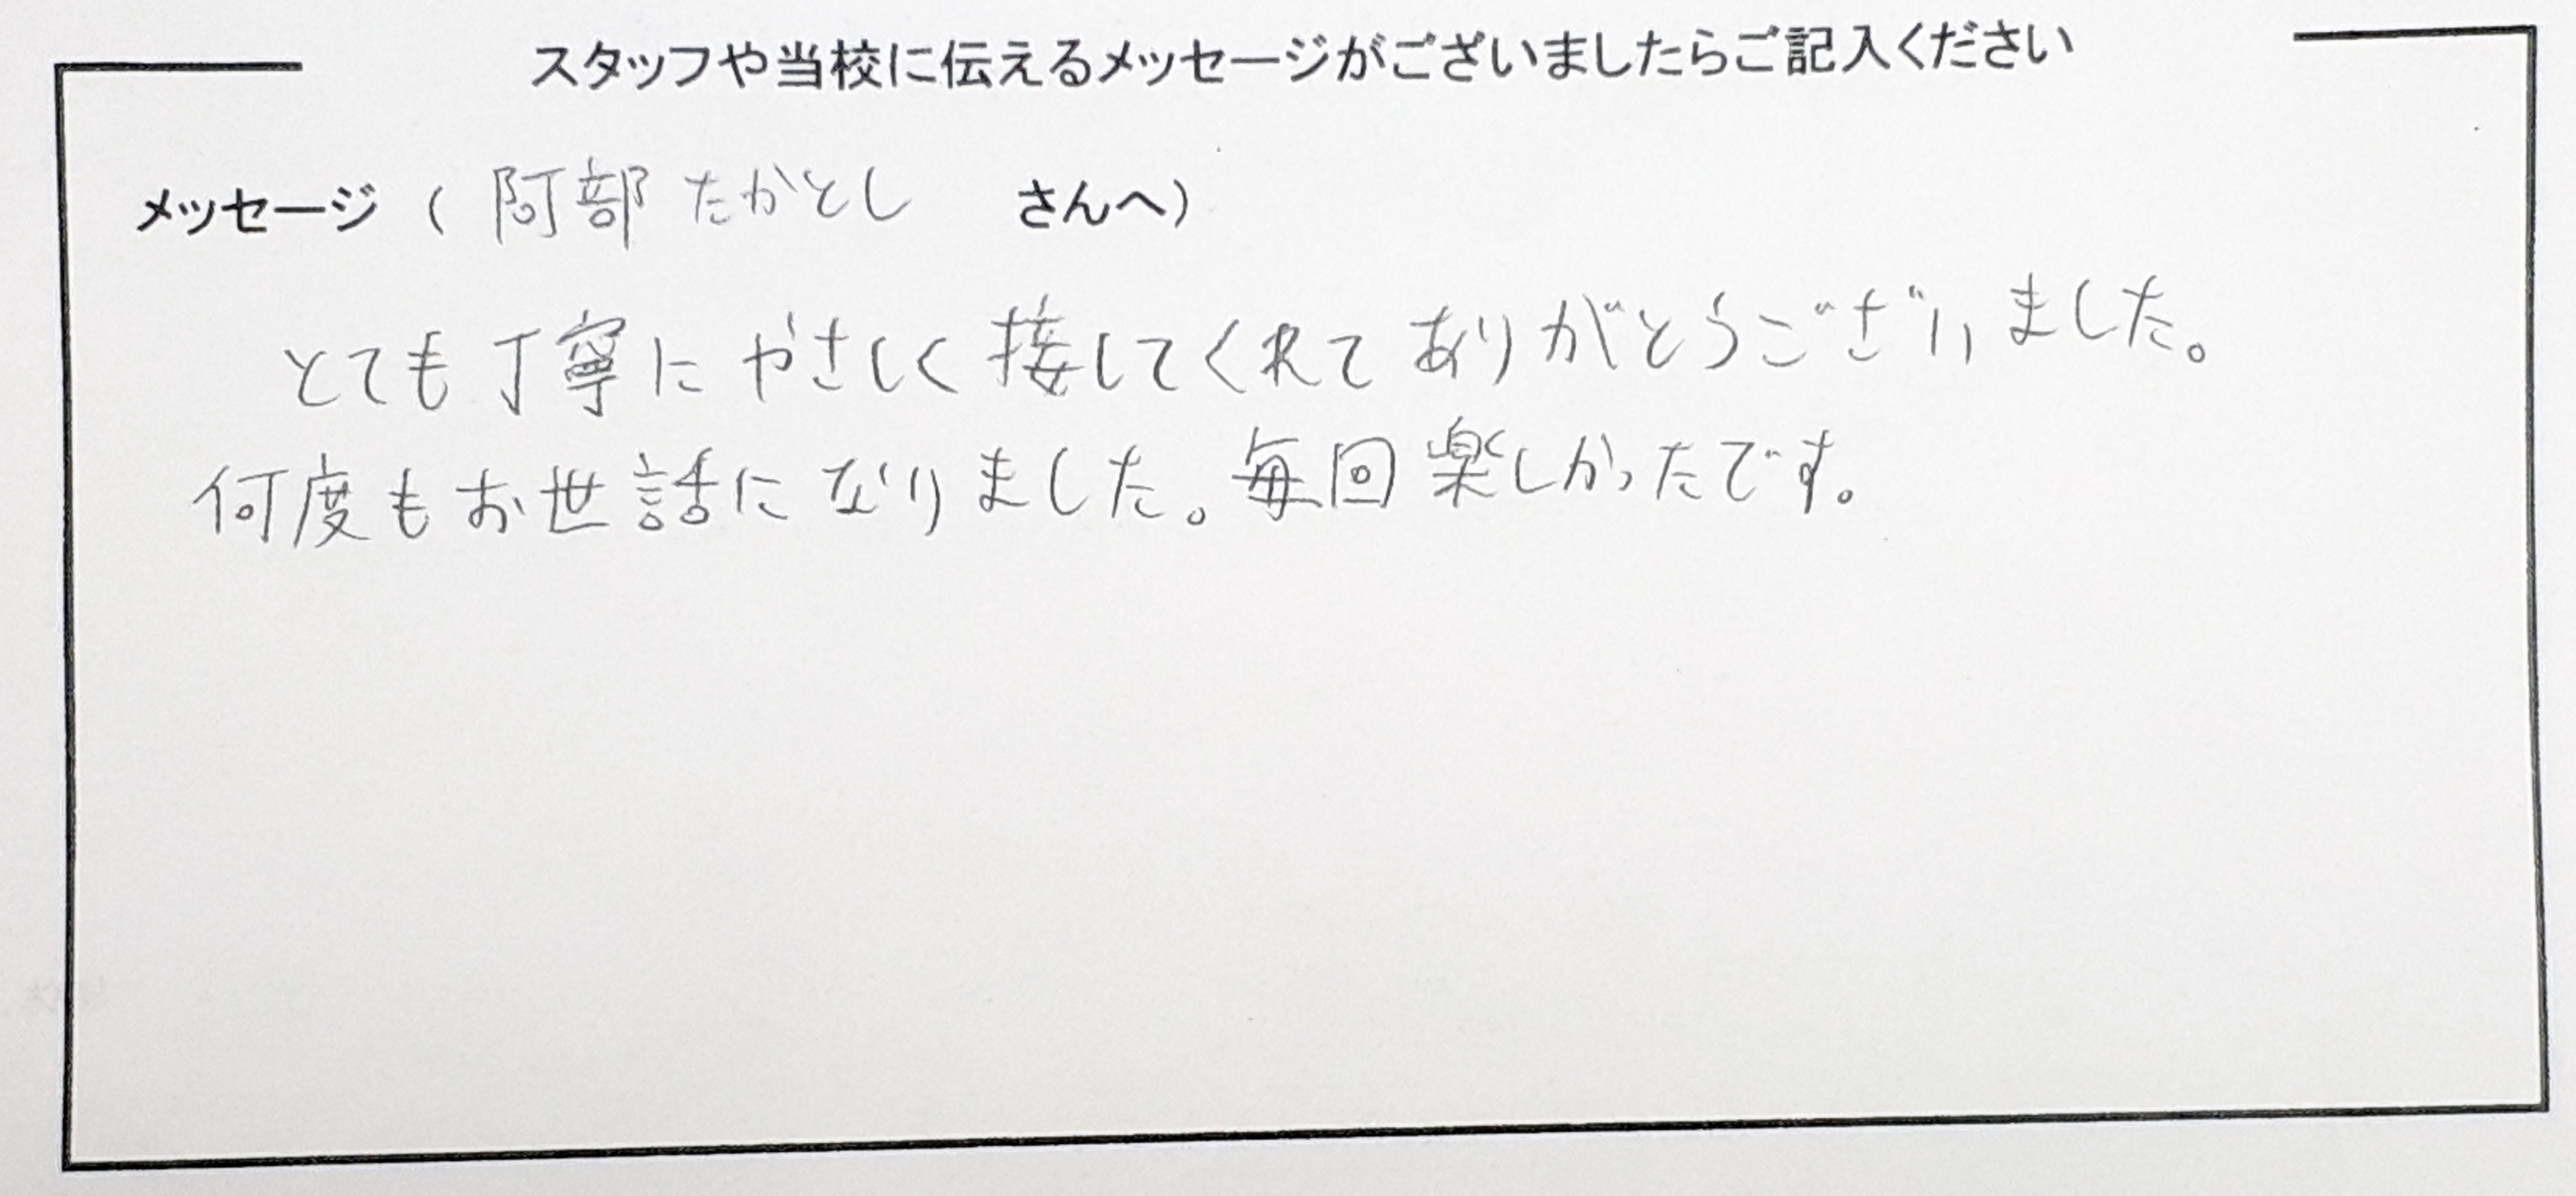 スタッフや当校に伝えるメッセージがございましたらご記入ください
メッセージ（ 阿部 たかとし さんへ）
とても丁寧にやさしく接してくれてありがとうございました。
何度もお世話になりました。毎回楽しかったです。